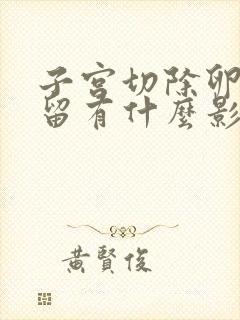 子宮切除卵
留有什麼影
黃賢俊